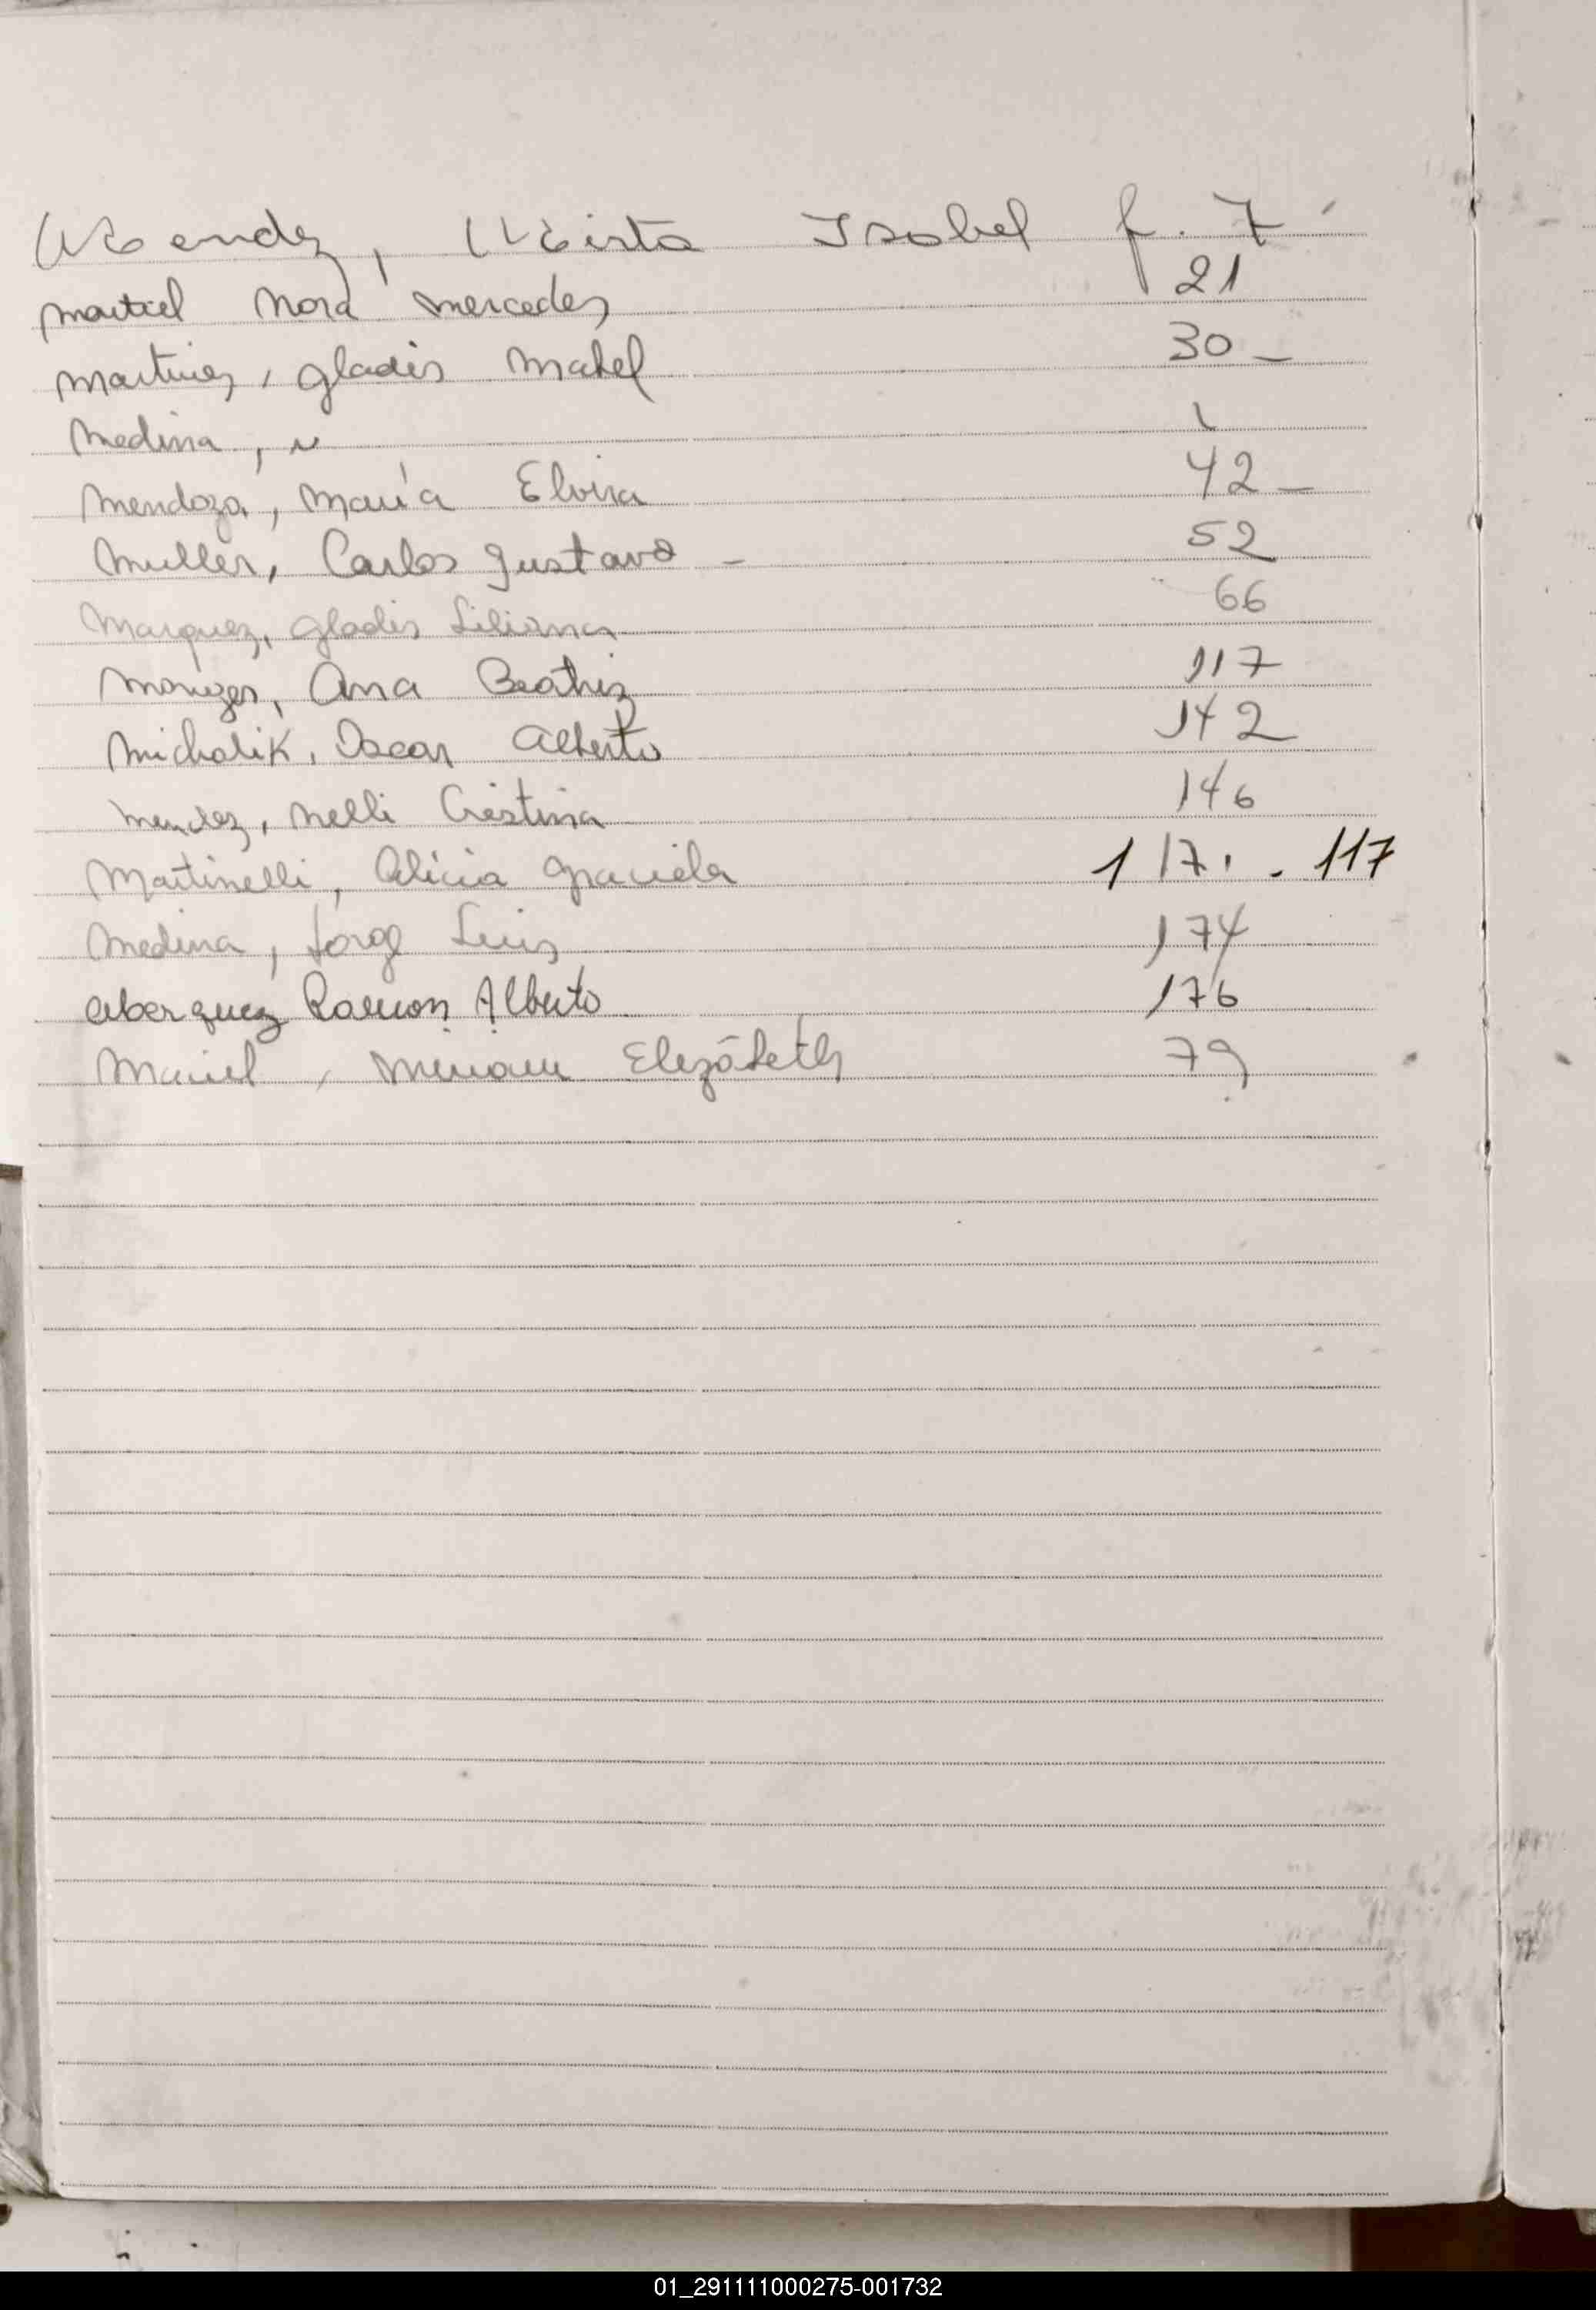 Mendez, Mirta Isabel f. 7
Martiel Nora Mercedes 21
Martinez, Gladis Mabel 30 -
Medina, N
Mendoza, María Elvira 42 -
Muller, Carlos Gustavo - 52
Marquez, Gladis Liliana 66
Ana Beatriz 117
Michalik, Oscar Alberto 142
Mendez, Nelli Cristina 146
Martinelli, Alicia Graciela 117. - 117
Medina, Jorge Luis 174
Ramon Alberto 176
Maciel, Miriam Elizabeth 79
01_291111000275-001732